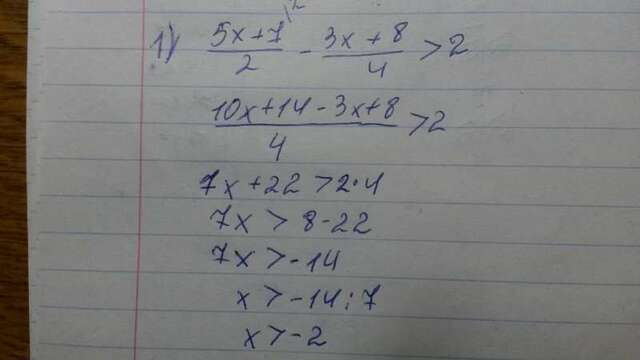 1) (5x+7)/2 \² - (3x+8)/4 > 2
(10x+14-3x+8)/4 > 2
7x+22 > 2·4
7x > 8-22
7x > -14
x > -14:7
x > -2